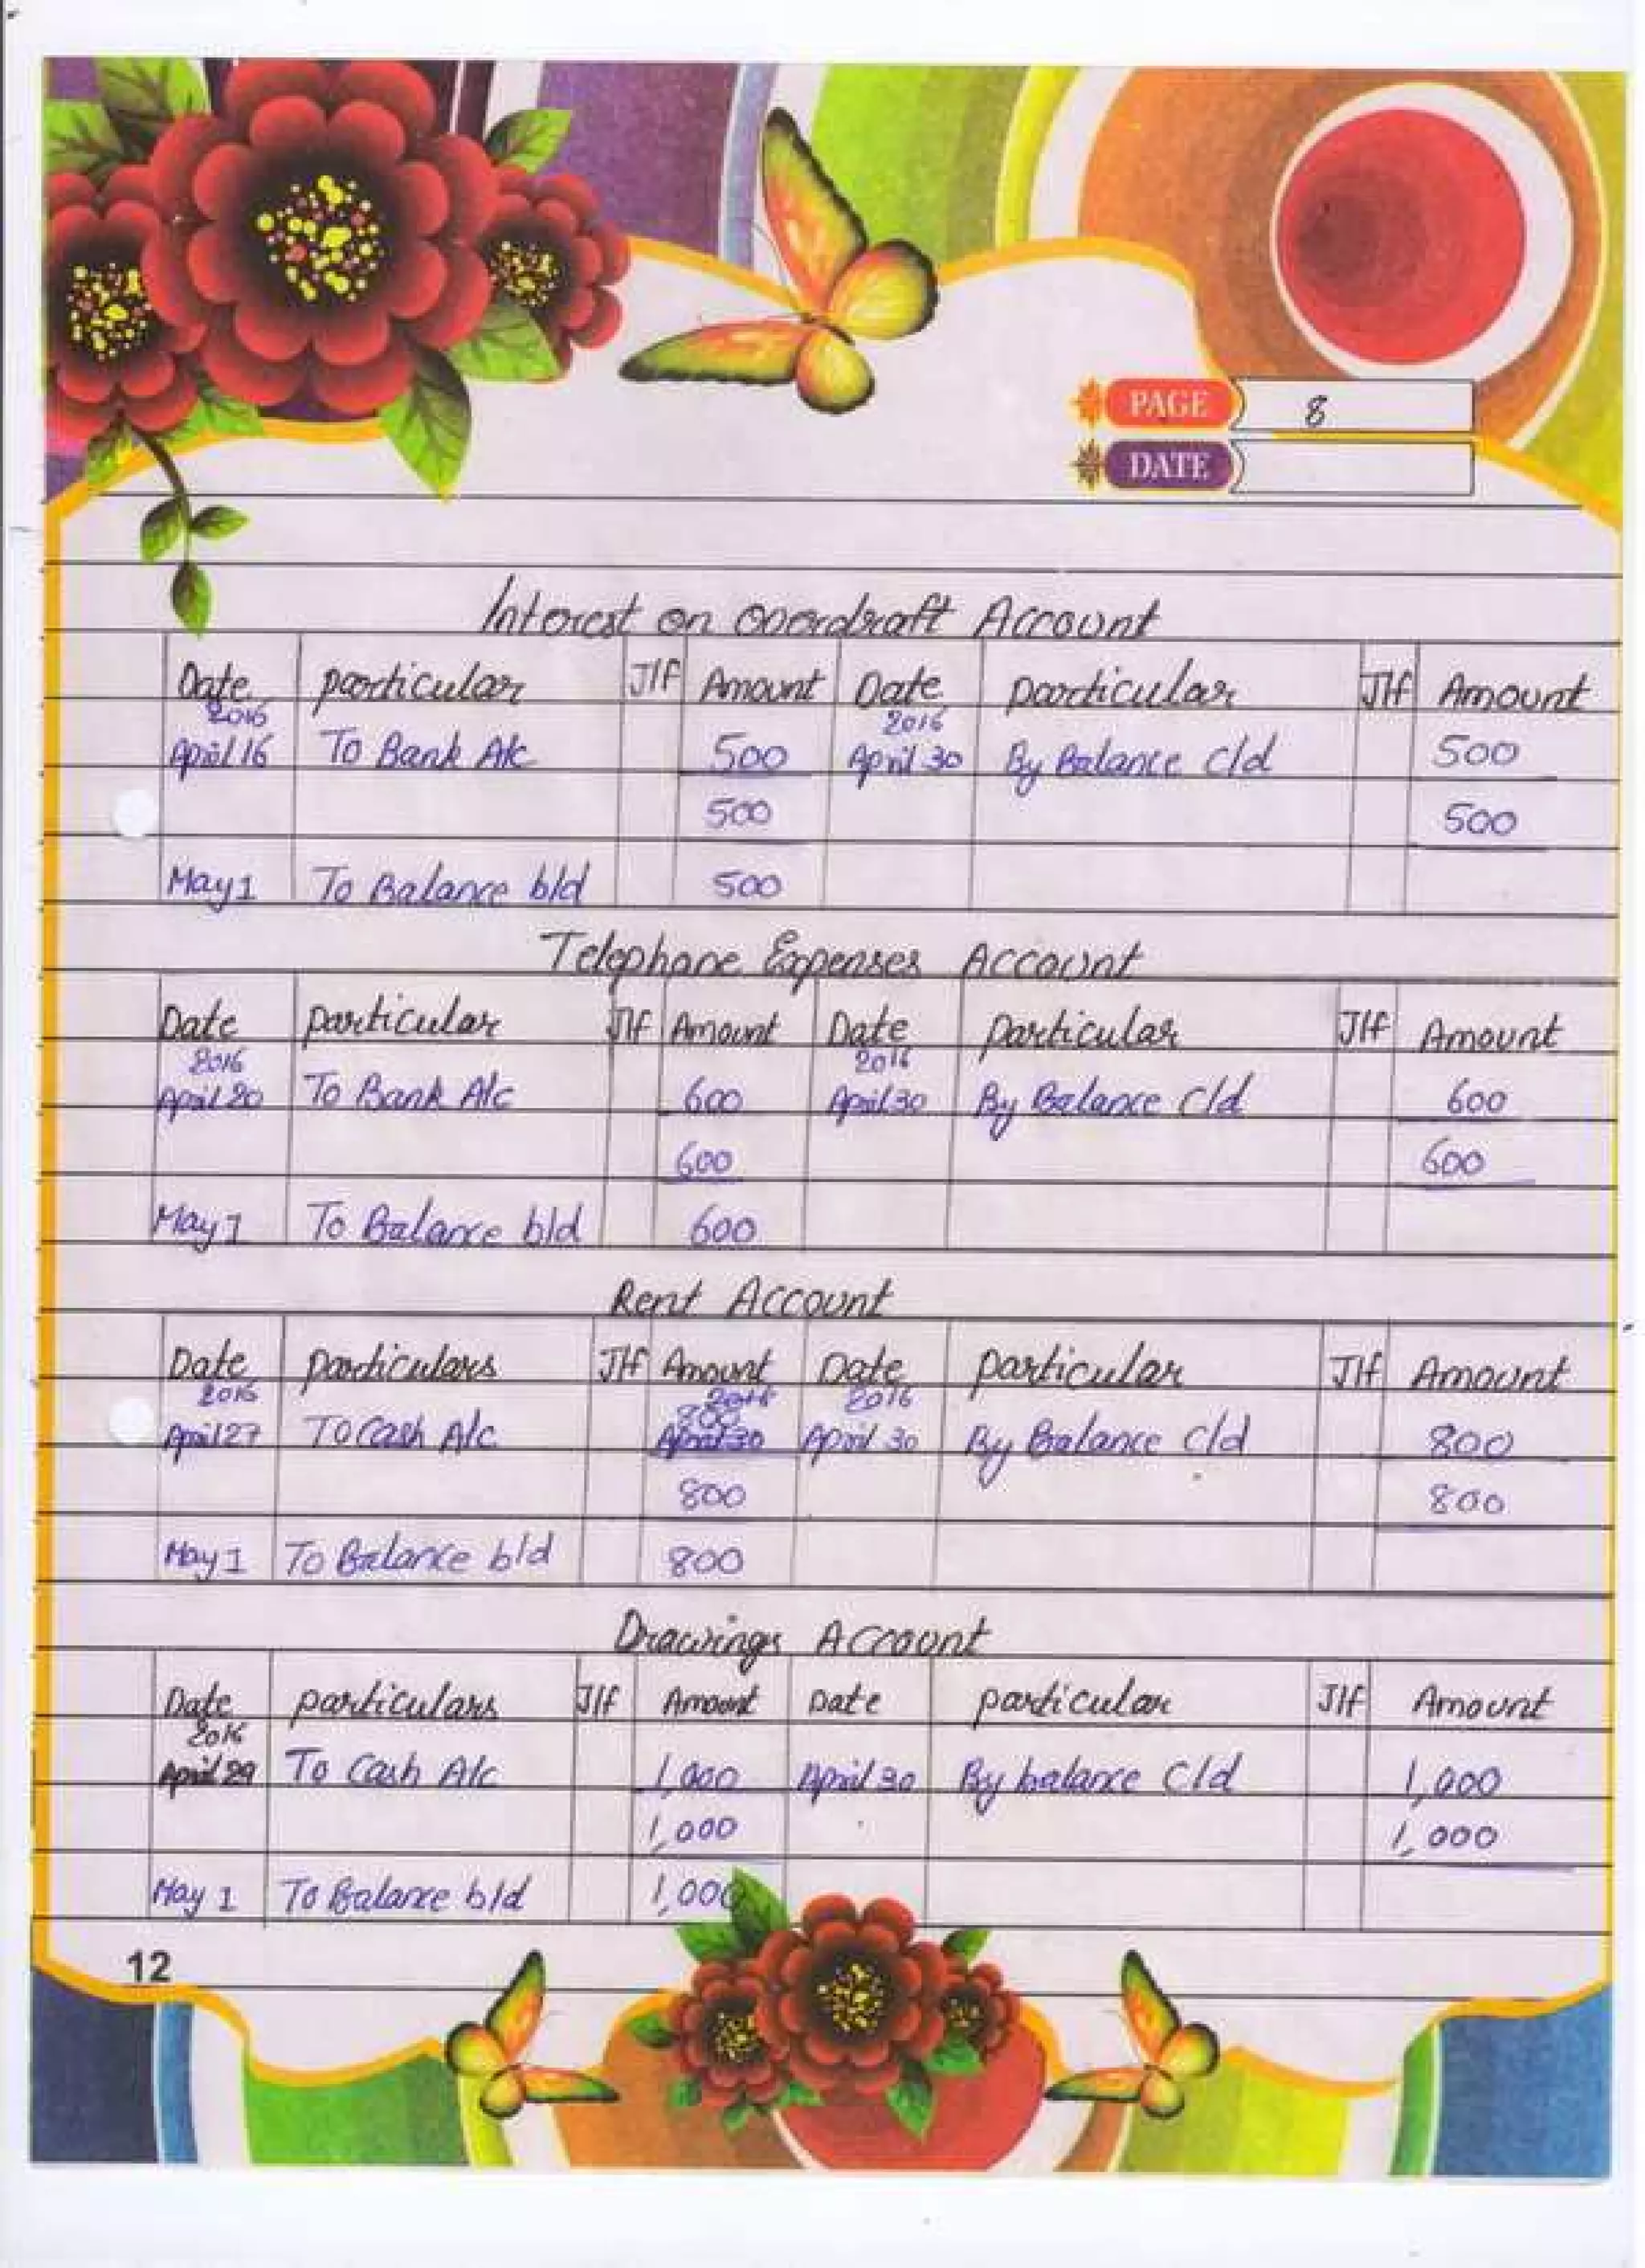 PAGE 8
DATE
Interest on overdraft Account
Date particular J/f Amount Date particular J/f Amount
2016 2016
April 16 To Bank A/c 500 April 30 By Balance c/d 500
500 500
May 1 To Balance b/d 500
Telephone Expenses Account
Date particular J/f Amount Date particular J/f Amount
2016 2016
April 20 To Bank A/c 600 April 30 By Balance c/d 600
600 600
May 1 To Balance b/d 600
Rent Account
Date particulars J/f Amount Date particular J/f Amount
2016 2016 2016
800
April 27 To Cash A/c April 30 April 30 By Balance c/d 800
800 800
May 1 To Balance b/d 800
Drawings Account
Date particulars J/f Amount Date particular J/f Amount
2016
April 29 To Cash A/c 1,000 April 30 By balance c/d 1,000
1,000 1,000
May 1 To Balance b/d 1,000
12